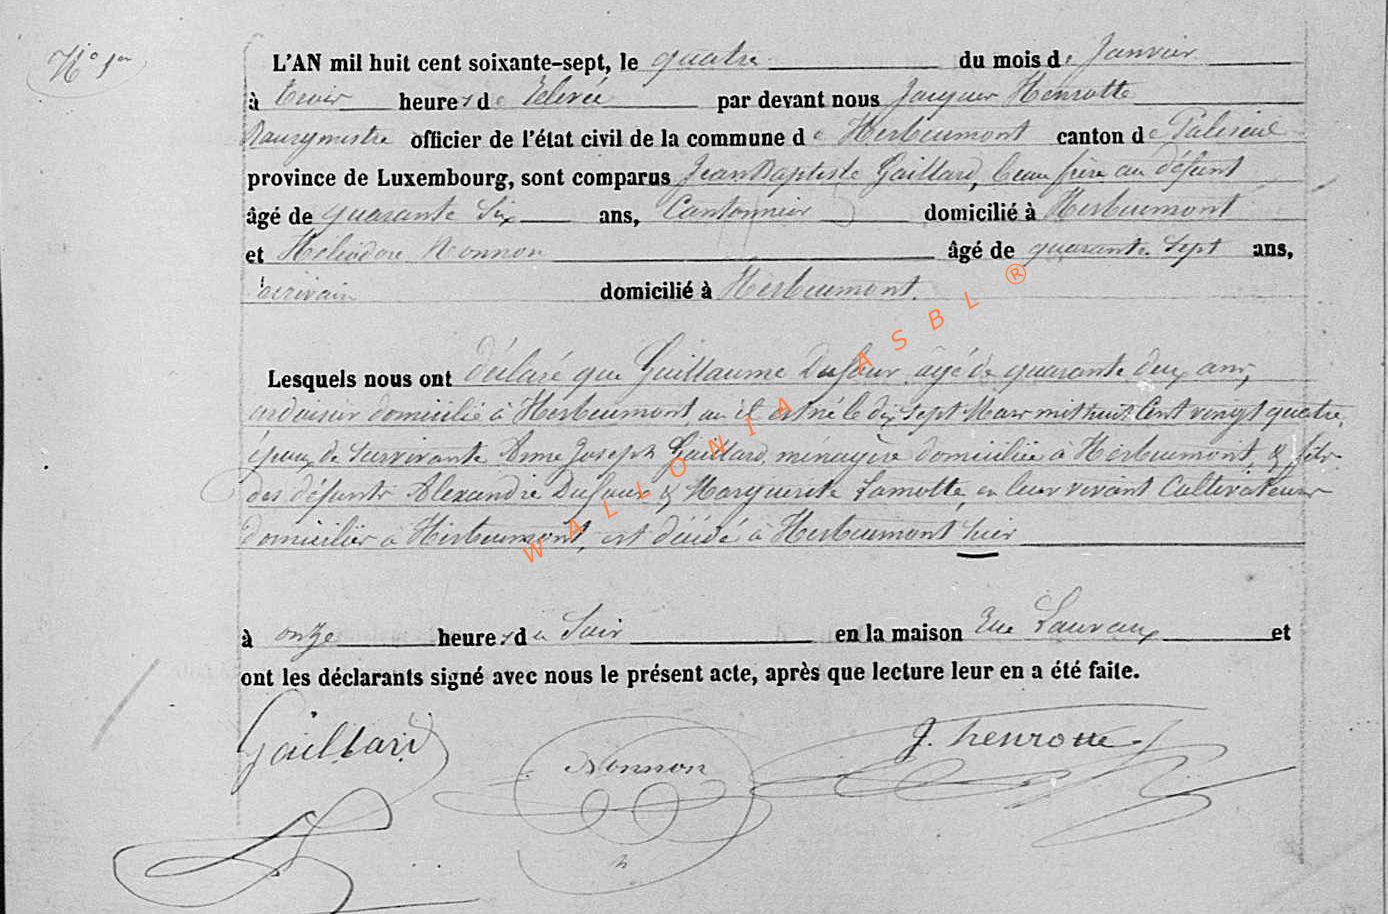 N° 1er
L'AN mil huit cent soixante-sept, le quatre du mois de Janvier
à trois heures de relevée par devant nous Jacques Henrotte
Bourgmestre officier de l'état civil de la commune de Herbeumont canton de Paliseul
province de Luxembourg, sont comparus Jean Baptiste Gaillard, beau frère au défunt
âgé de quarante six ans, Cantonnier domicilié à Herbeumont
et Héliodore Nonnon âgé de quarante sept ans,
écrivain domicilié à Herbeumont.
Lesquels nous ont déclaré que Guillaume Dufour âgé de quarante deux ans,
ardoisier domicilié à Herbeumont, où il est né le dix sept Mars mil huit Cent vingt quatre,
époux de survivante Anne Joseph Gaillard, ménagère domiciliée à Herbeumont, & fils
des défunts Alexandre Dufour & Marguerite Lamotte, en leur vivant Cultivateurs
domiciliés à Herbeumont, est décédé à Herbeumont hier
à onze heures du Soir en la maison Rue Lauvaux et
ont les déclarants signé avec nous le présent acte, après que lecture leur en a été faite.
Gaillard
Nonnon
J. henrotte
WALLONIA ASBL ®